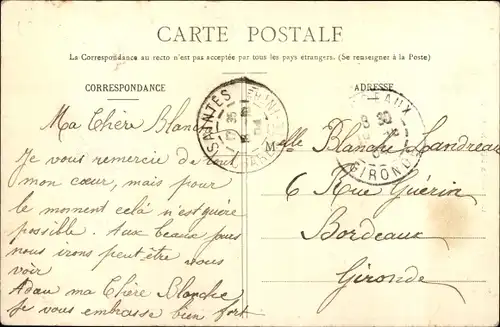 CARTE POSTALE
La Correspondance au recto n'est pas acceptée par tous les pays étrangers. (Se renseigner à la Poste)
CORRESPONDANCE
ADRESSE
Ma Chère Blanche
Je vous remercie de tout
mon cœur, mais pour
le moment celà n'est guère
possible. Aux beaux jours
nous irons peut être vous
voir
Adieu ma Chère Blanche
Je vous embrasse bien fort
SAINTES
BORDEAUX
GIRONDE
Melle Blanche Landreau
6 Rue Guérin
Bordeaux
Gironde